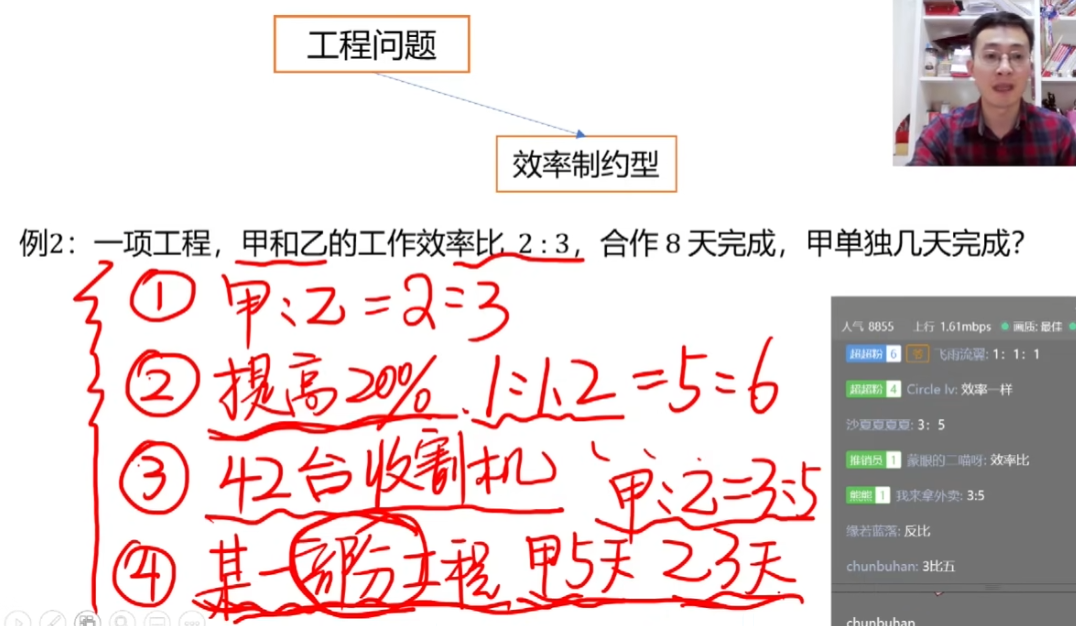 工程问题
效率制约型
例2：一项工程，甲和乙的工作效率比 2 : 3，合作 8 天完成，甲单独几天完成？
① 甲:乙=2:3
② 提高20% 1:1.2=5:6
③ 42台收割机 甲:乙=3:5
④ 某一部分工程 甲5天 乙3天
人气 8855 上行 1.61mbps 画质: 最佳
超超粉 6 飞雨流翼: 1：1：1
超超粉 4 Circle lv: 效率一样
沙夏夏夏夏: 3：5
推销员 1 蒙眼的二喵呀: 效率比
熊熊 1 找来拿外卖: 3:5
缘若蓝落: 反比
chunbuhan: 3比五
chunbuhan